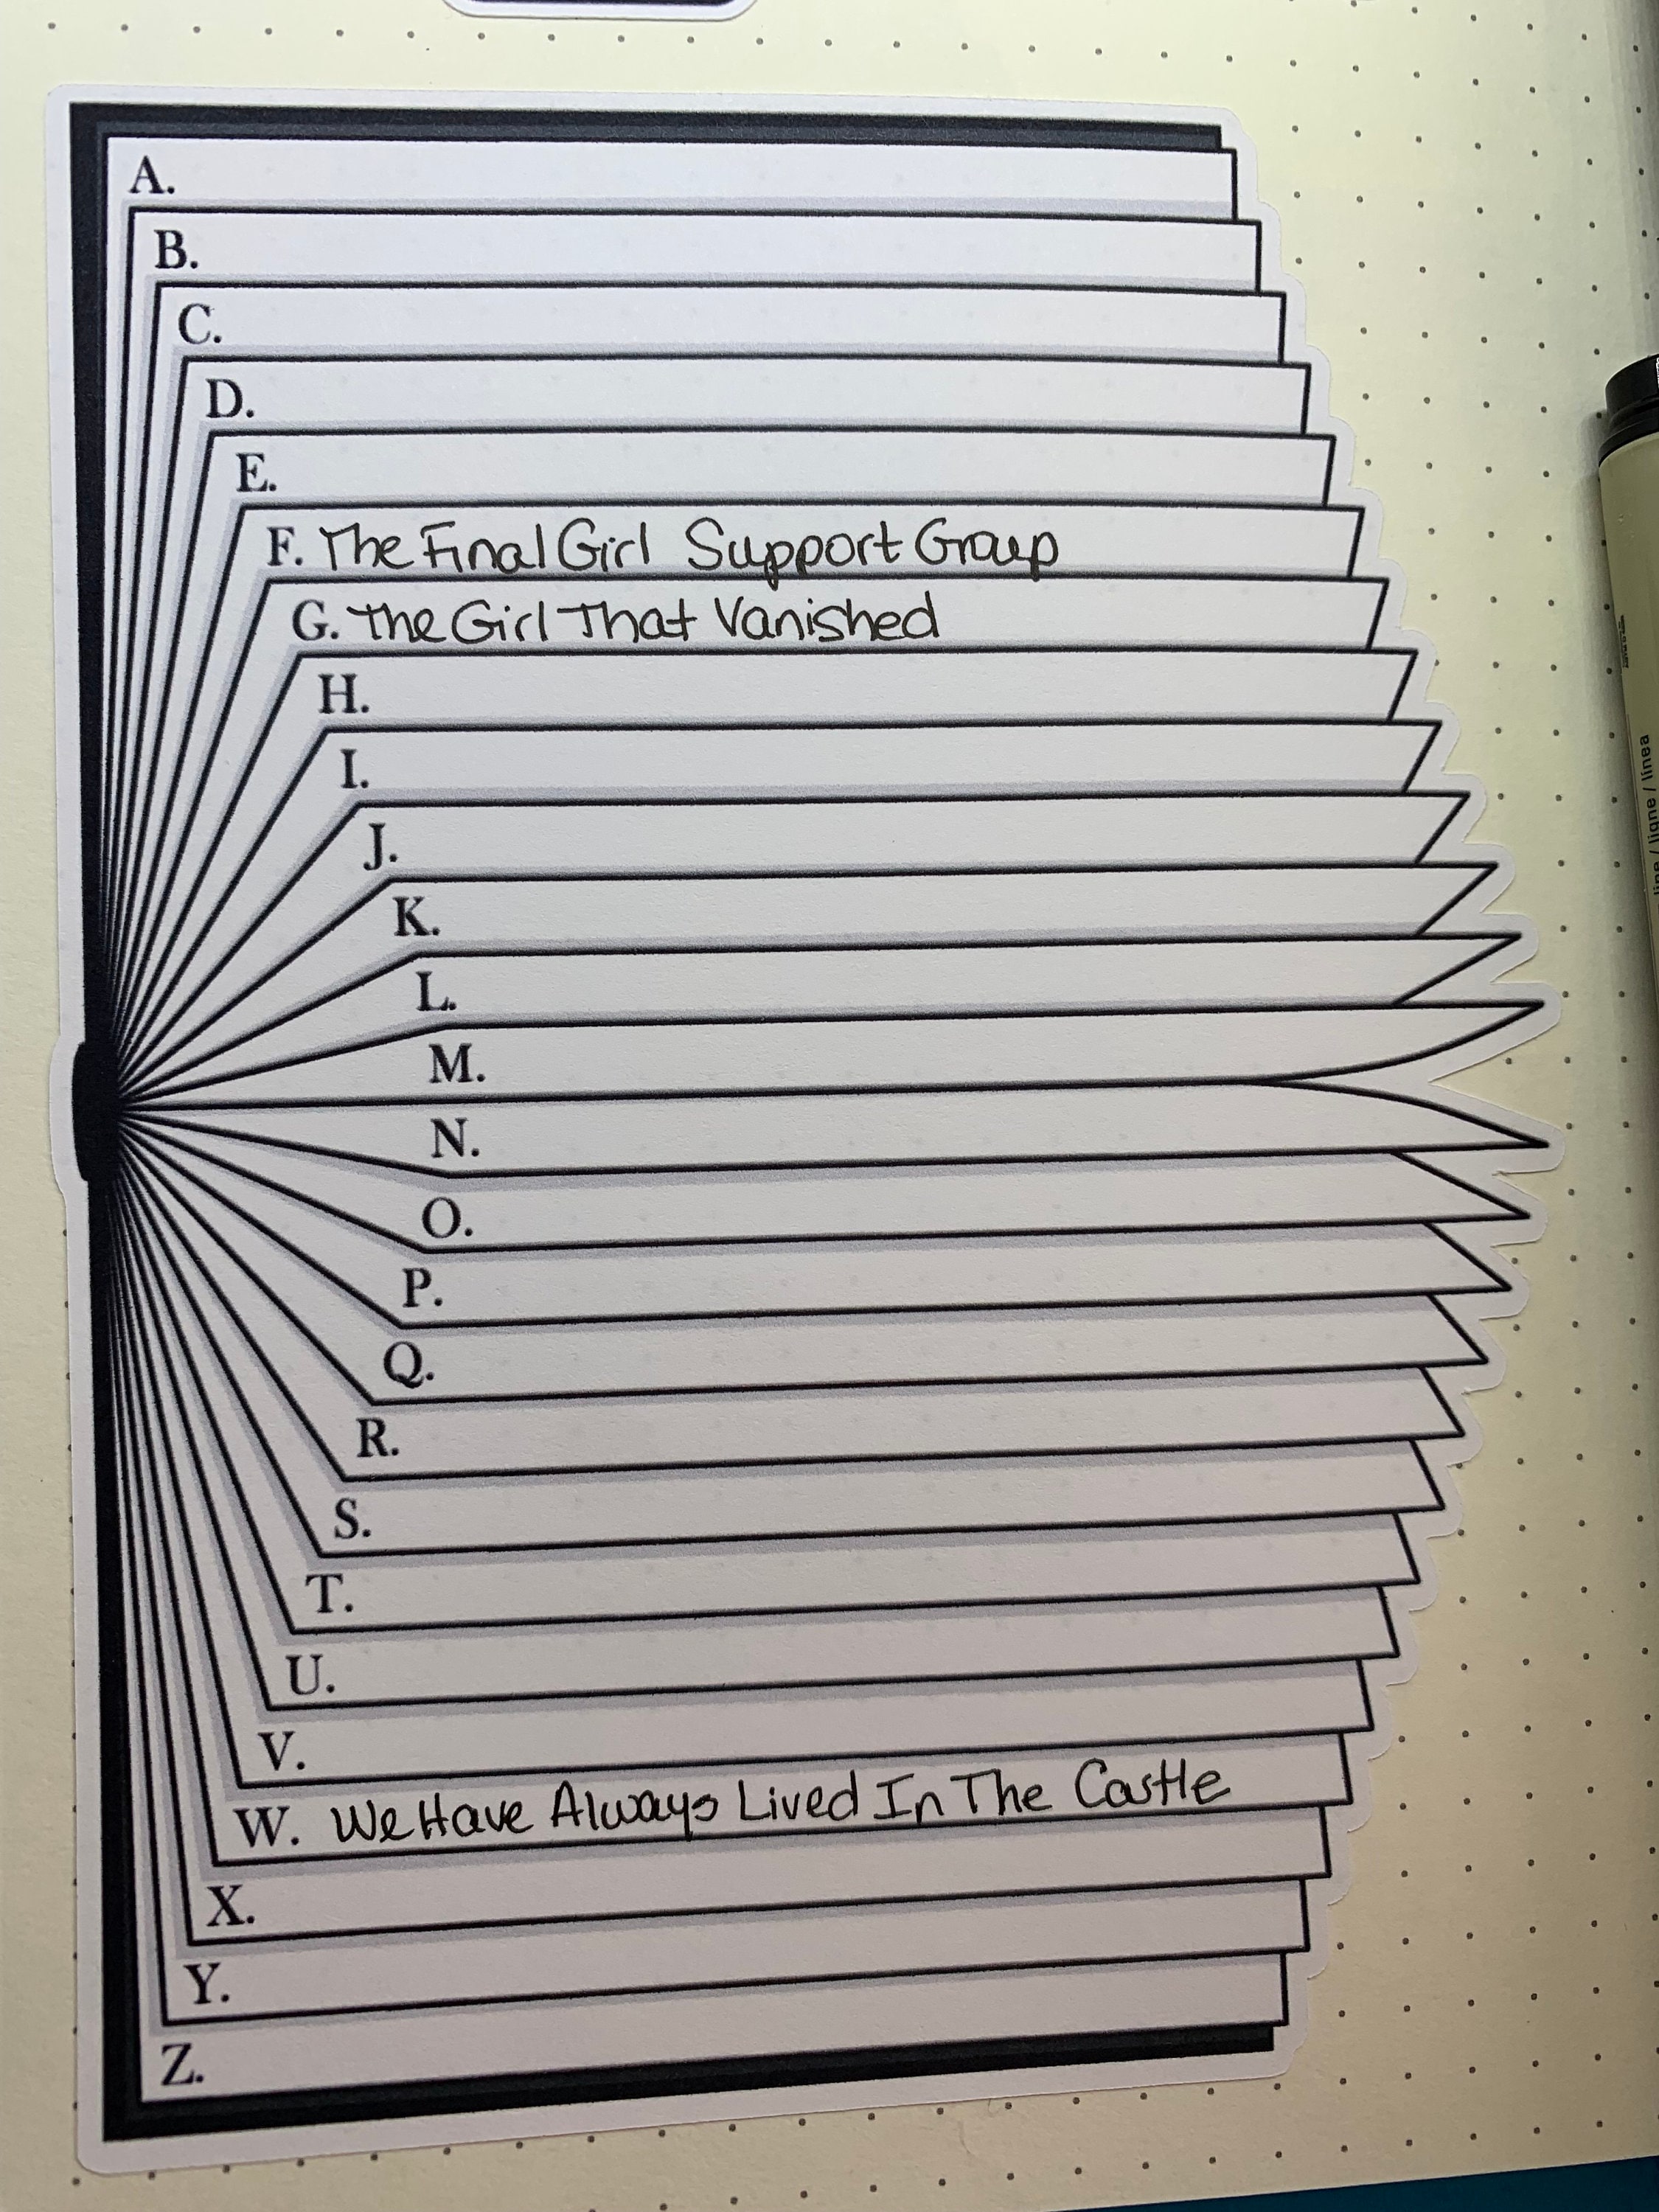 A.
B.
C.
D.
E.
F. The Final Girl Support Group
G. The Girl That Vanished
H.
I.
J.
K.
L.
M.
N.
O.
P.
Q.
R.
S.
T.
U.
V.
W. We Have Always Lived In The Castle
X.
Y.
Z.
line / ligne / línea